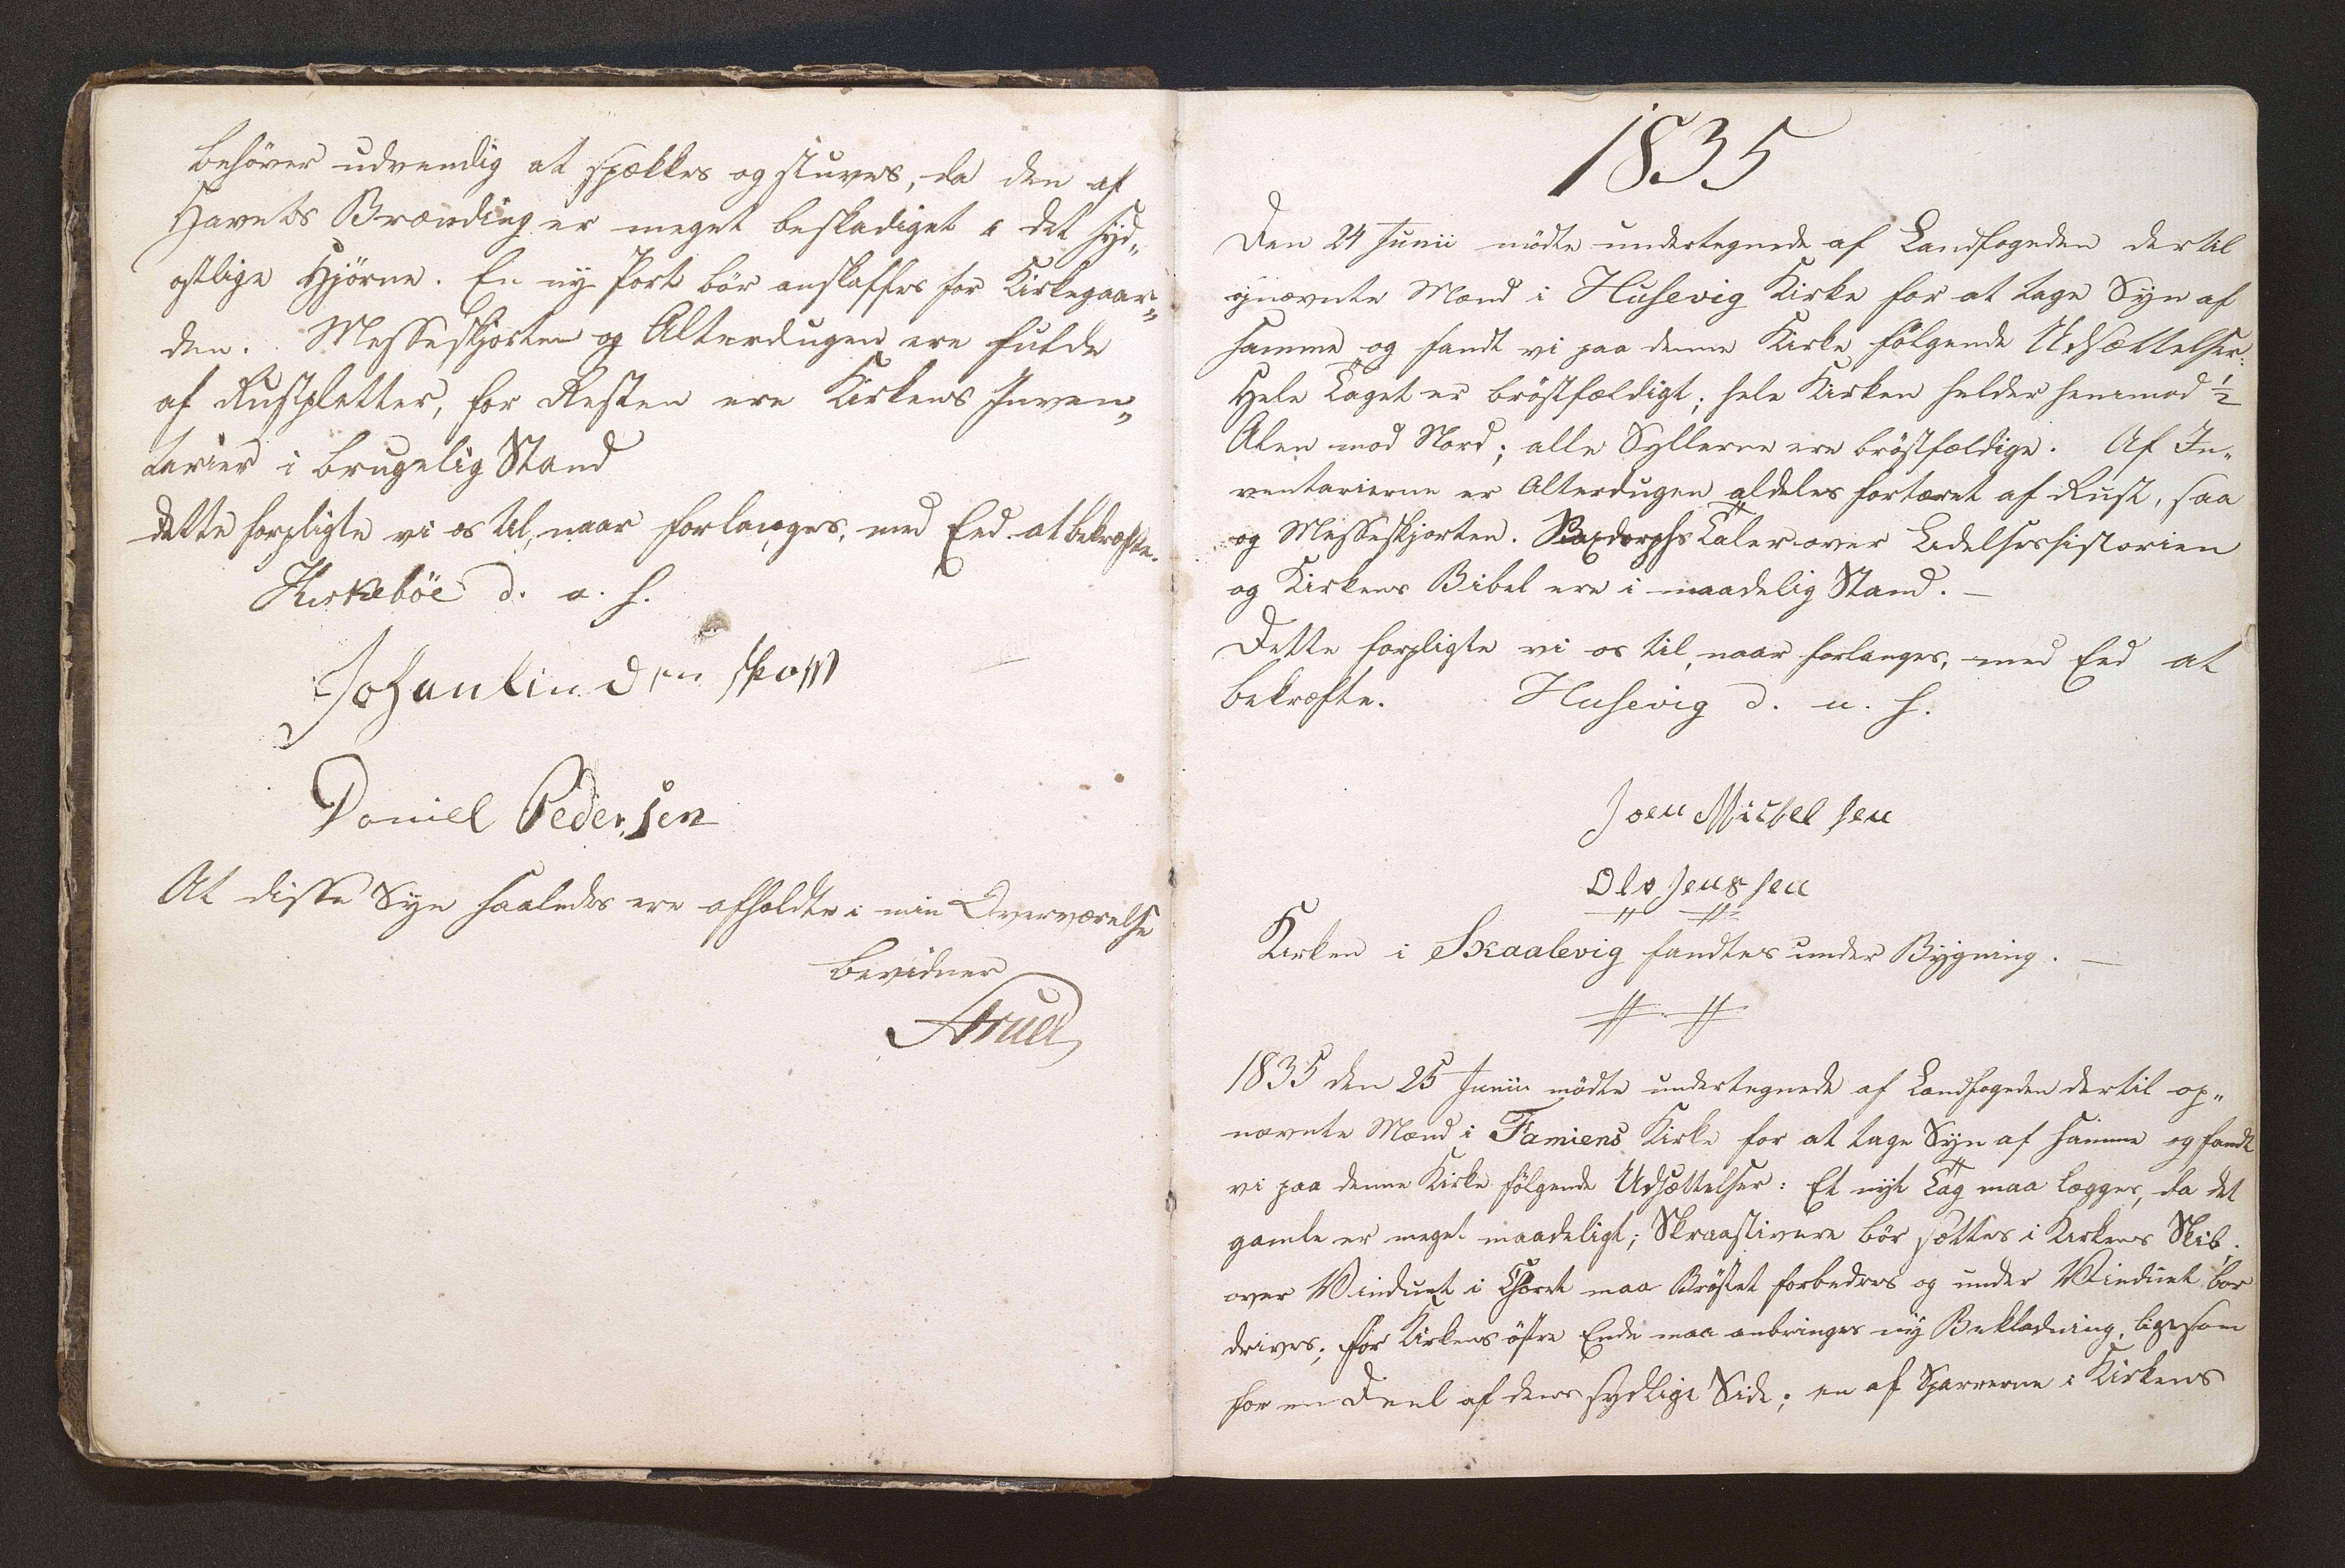 behöver udvendig at spækkes og stuves, da den af
Havets Brænding er meget beskadiget i det syd„
ostlige Hjørne. En ny Port bör anskaffes for Kirkegaar„
den. Messeskjorten og Alterdugen ere fulde
af Rustpletter, for Resten ere Kirkens Inven„
tarier i brugelig Stand
dette forpligte vi os til, naar forlanges, med Eed at bekræfte.
Kirkeböe d. a. s.
Daniel Pedersen
At disse Syn saaledes ere afholdte i min Overværelse
bevidner
1835
Den 24 Junii mödte undertegnede af Landfogeden dertil
nævnte Mænd i Husevig Kirke for at tage Syn af
samme og fandt vi paa denne Kirke fölgende Udsættelser:
Hele Taget er bröstfældigt; hele Kirken helder henimod ½
Alen mod Nord; alle Syllerne ere bröstfældige. Af In„
ventarierne er Alterdugen aldeles fortæret af Rust, saa
og Messeskjorten. Taler over Lidelseshistorien
og Kirkens Bibel ere i maadelig Stand. —
Dette forpligte vi os til, naar forlanges, med Eed at
bekræfte. Husevig d. u. s.
Joen Michelsen
Ole Jenssen
Kirken i Skaalevig fandtes under Bygning. —
1835 den 25 Junii mödte undertegnede af Landfogeden dertil op„
nævnte Mænd i Famiens Kirke for at tage Syn af samme og fandt
vi paa denne Kirke fölgende Udsættelser: Et nyt Tag maa lægges, da det
gamle er meget maadeligt; Skraastivere bör sættes i Kirkens Skib.
over Vinduet i Choret maa Bröstet forbedres og under Vinduet bör
drives; for Kirkens östre Ende maa anbringes ny Beklædning, ligesom
for en Deel af dens sydlige Side; en af Sparrerne i Kirkens